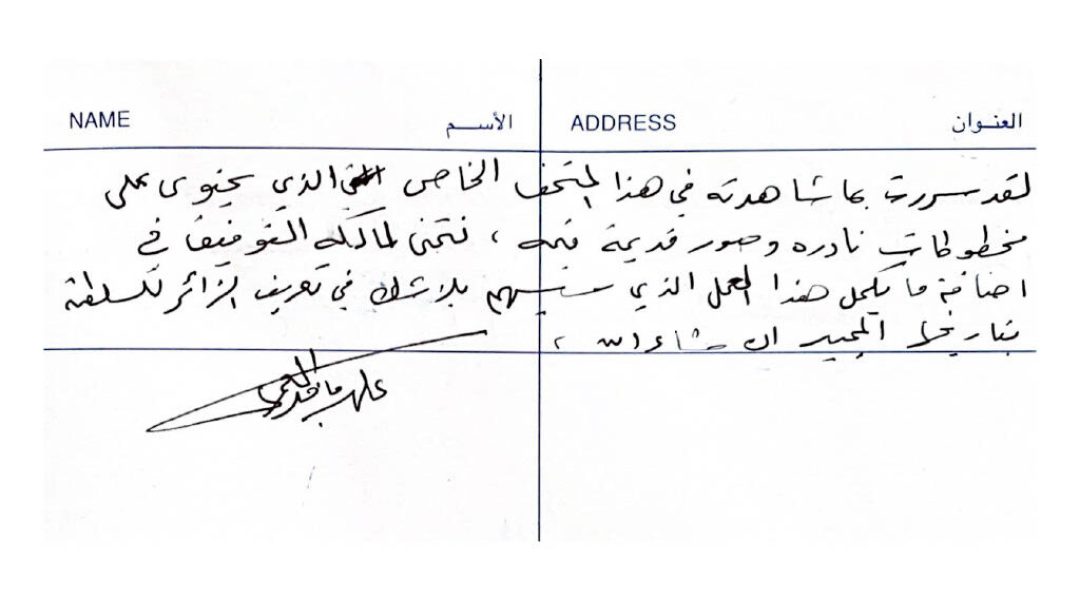 العنـوان ADDRESS الأســم NAME
لقد سررت بما شاهدته في هذا المتحف الخاص الذي يحتوى على
مخطوطات نادره وصور قديمة قيمه ، نتمنى لمالكه التوفيق في
اضافة ما يكمل هذا العمل الذي سيسهم بلاشك في تعريف الزائر للسلطنة
بتاريخها المجيد ان شاء الله ،